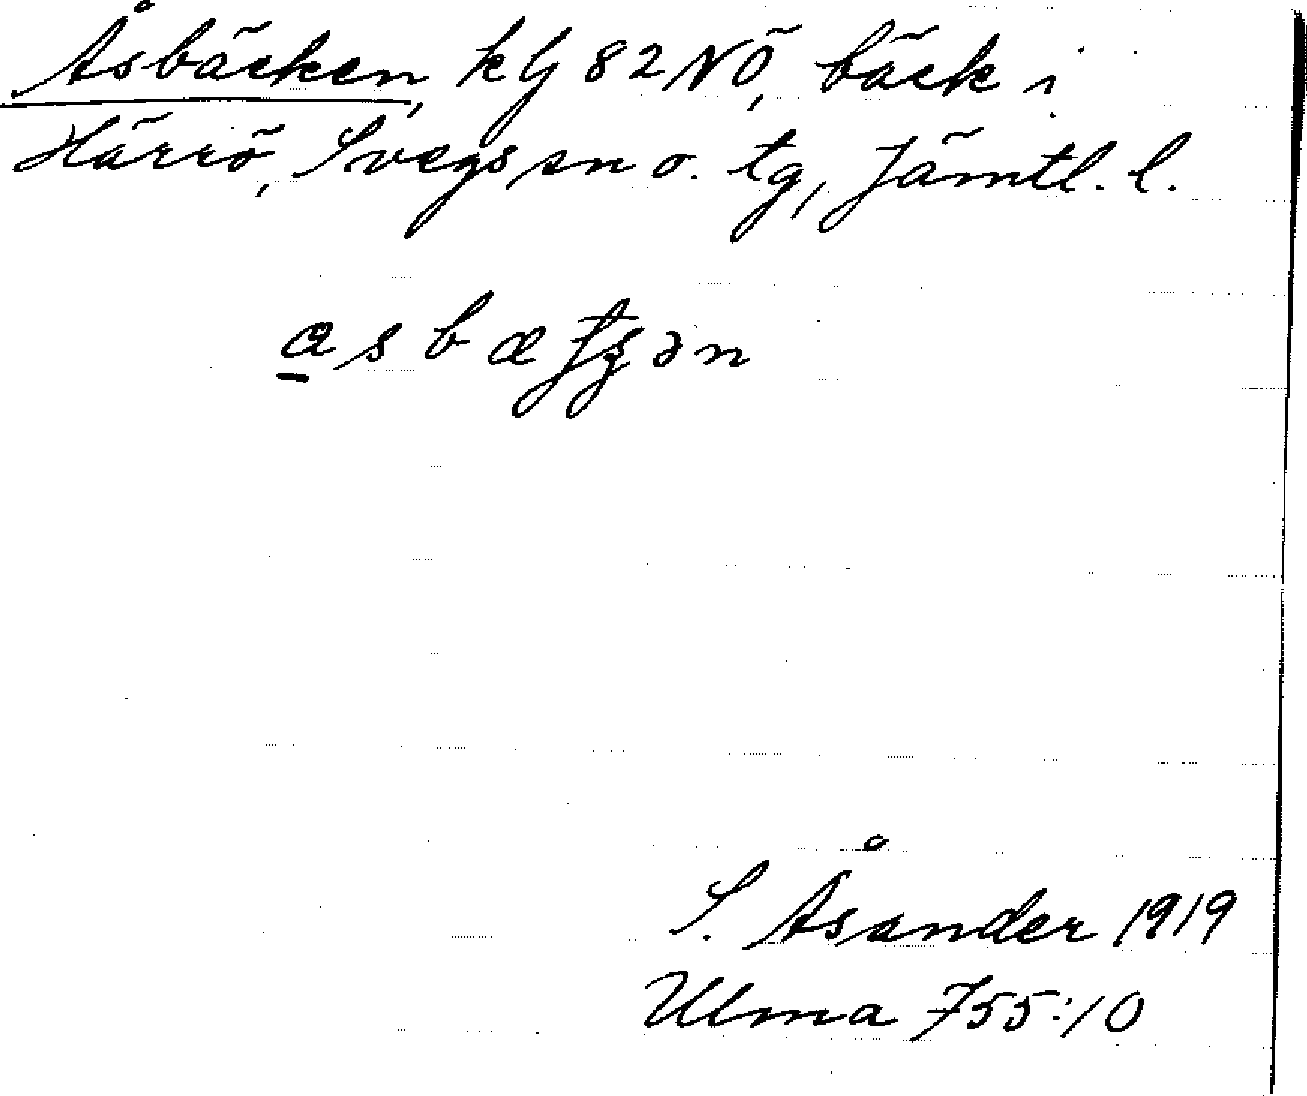 Åsbäcken, kbl 82 NÖ, bäck i
Härrö, Svegs sn o. tg, Jämtl. l.
S. Åsander 1919
Ulma 755:10